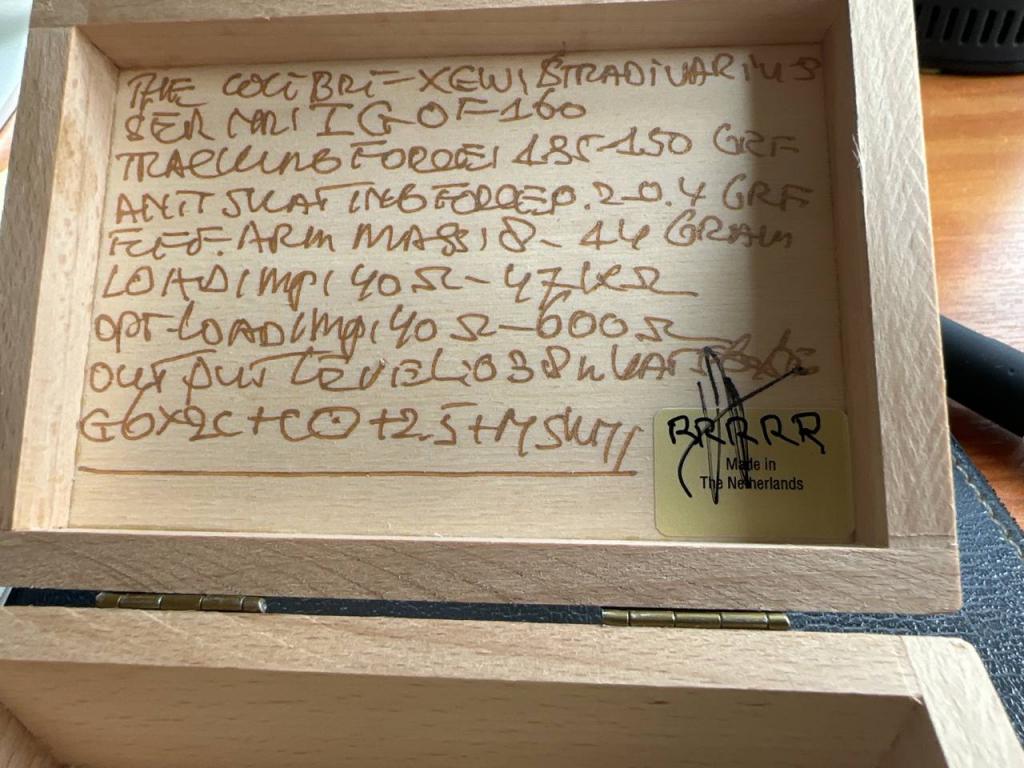 THE COLIBRI-XGW, STRADIVARIUS
SER NR: I G OF-160
TRACKING FORCE: 1.35-1.50 GRF
ANTI SKATING FORCE 0.2-0.4 GRF
EFF. ARM MASS: 8-14 GRAM
LOAD IMP: 40 Ω-47 KΩ
OPT-LOAD IMP: 40 Ω-600 Ω
OUTPUT LEVEL: 0.38
G6X2C+CO+2.5+
BRRRR
Made in
The Netherlands